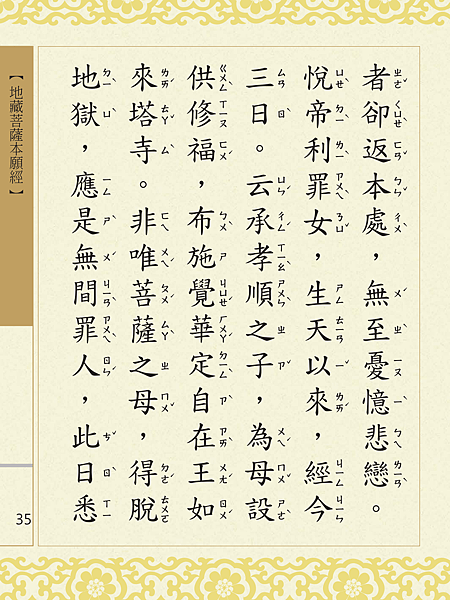 者卻返本處，無至憂憶悲戀。
悅帝利罪女，生天以來，經今
三日。云承孝順之子，為母設
供修福，布施覺華定自在王如
來塔寺。非唯菩薩之母，得脫
地獄，應是無間罪人，此日悉
【地藏菩薩本願經】
35